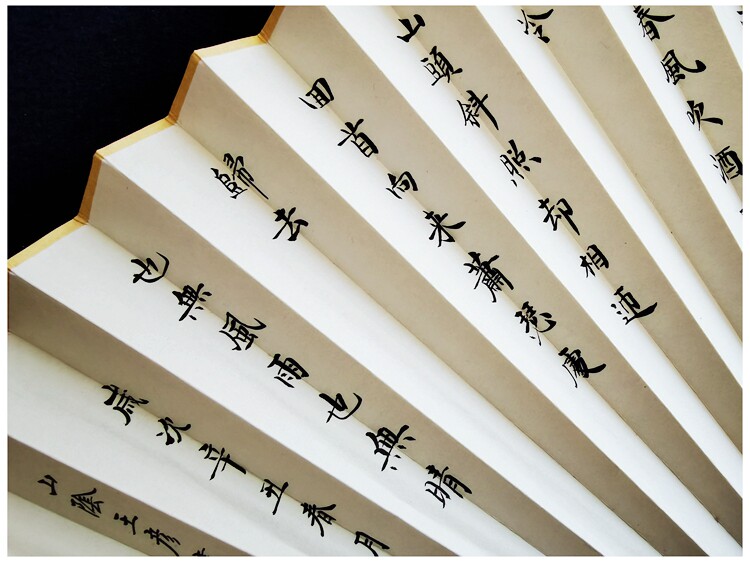 春風吹酒
冷
山頭斜照却相迎
回首向来蕭瑟處
歸去
也無風雨也無晴
歲次辛丑春月
山陰王彦